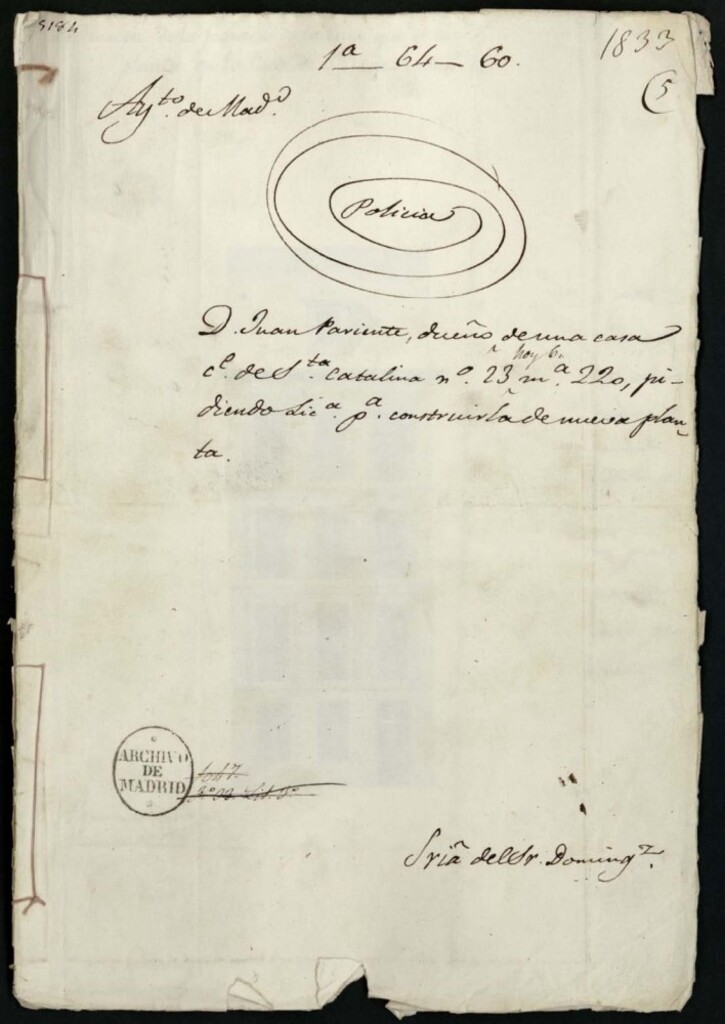 5184
1833
1ª 64 — 60.
5
Ay.to de Mad.d
Policia
D. Juan Pariente, dueño de una casa
hoy 6.
c.e de S.ta Catalina n.º 23 m.ª 220, pi-
diendo Lic.ª p.ª construirla de nueva plan-
ta.
ARCHIVO
DE
MADRID
Sria del Sr. Doming.z